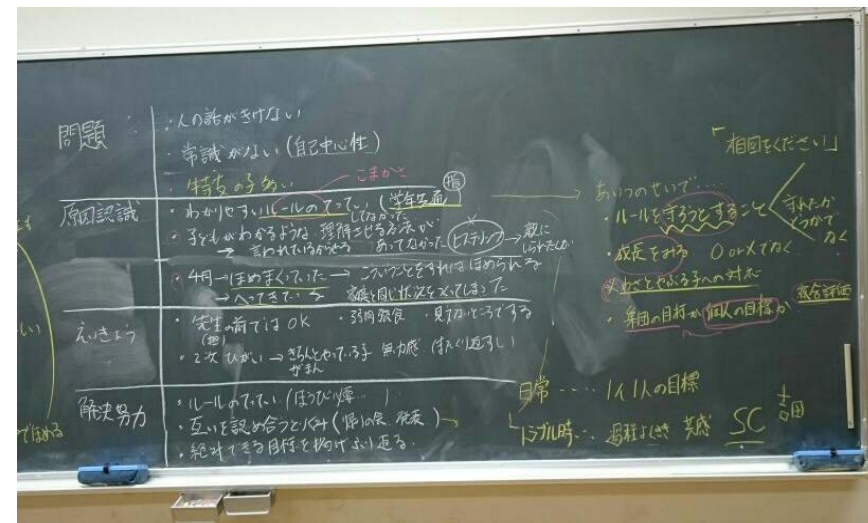 問題
・人の話がきけない
・常識がない(自己中心性)
・特支の子多い
こまかさ
原因認識
・わかりやすいルールのてってい(学年共通)
してなかった
・子どもがわかるような理解させる方法が
→言われているからやる あってなかった
・4月→ほめまくっていた→こういうことをすればほめられる
→へってきている 家庭と同じ状況をつくってしまった
えいきょう
・先生の前ではOK ・弱肉強食 ・見てないところでする
・2次ひがい→きちんとやっている子 無力感
がまん
解決努力
・ルールのてってい(ほうび
・互いを認め合うとりくみ(帰りの会 発表)
・絶対できる目標を掲げふり返る
でほめる
「相回をください」
あいつのせいで…
・ルールを守ろうとすること
守れたか
どうかで
なく
・成長をみる ○or×でなく
×わざとやぶる子への対応
・集団の目標か個人の目標か
総合評価
日常……1人1人の目標
トラブル時… 過程よくきき 共感 SC 活用